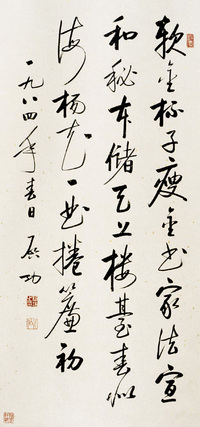 軟金杯子瘦金书家法宣
和秘本储天上楼臺春似
海杨花一曲捲簾初
一九八四年春日启功